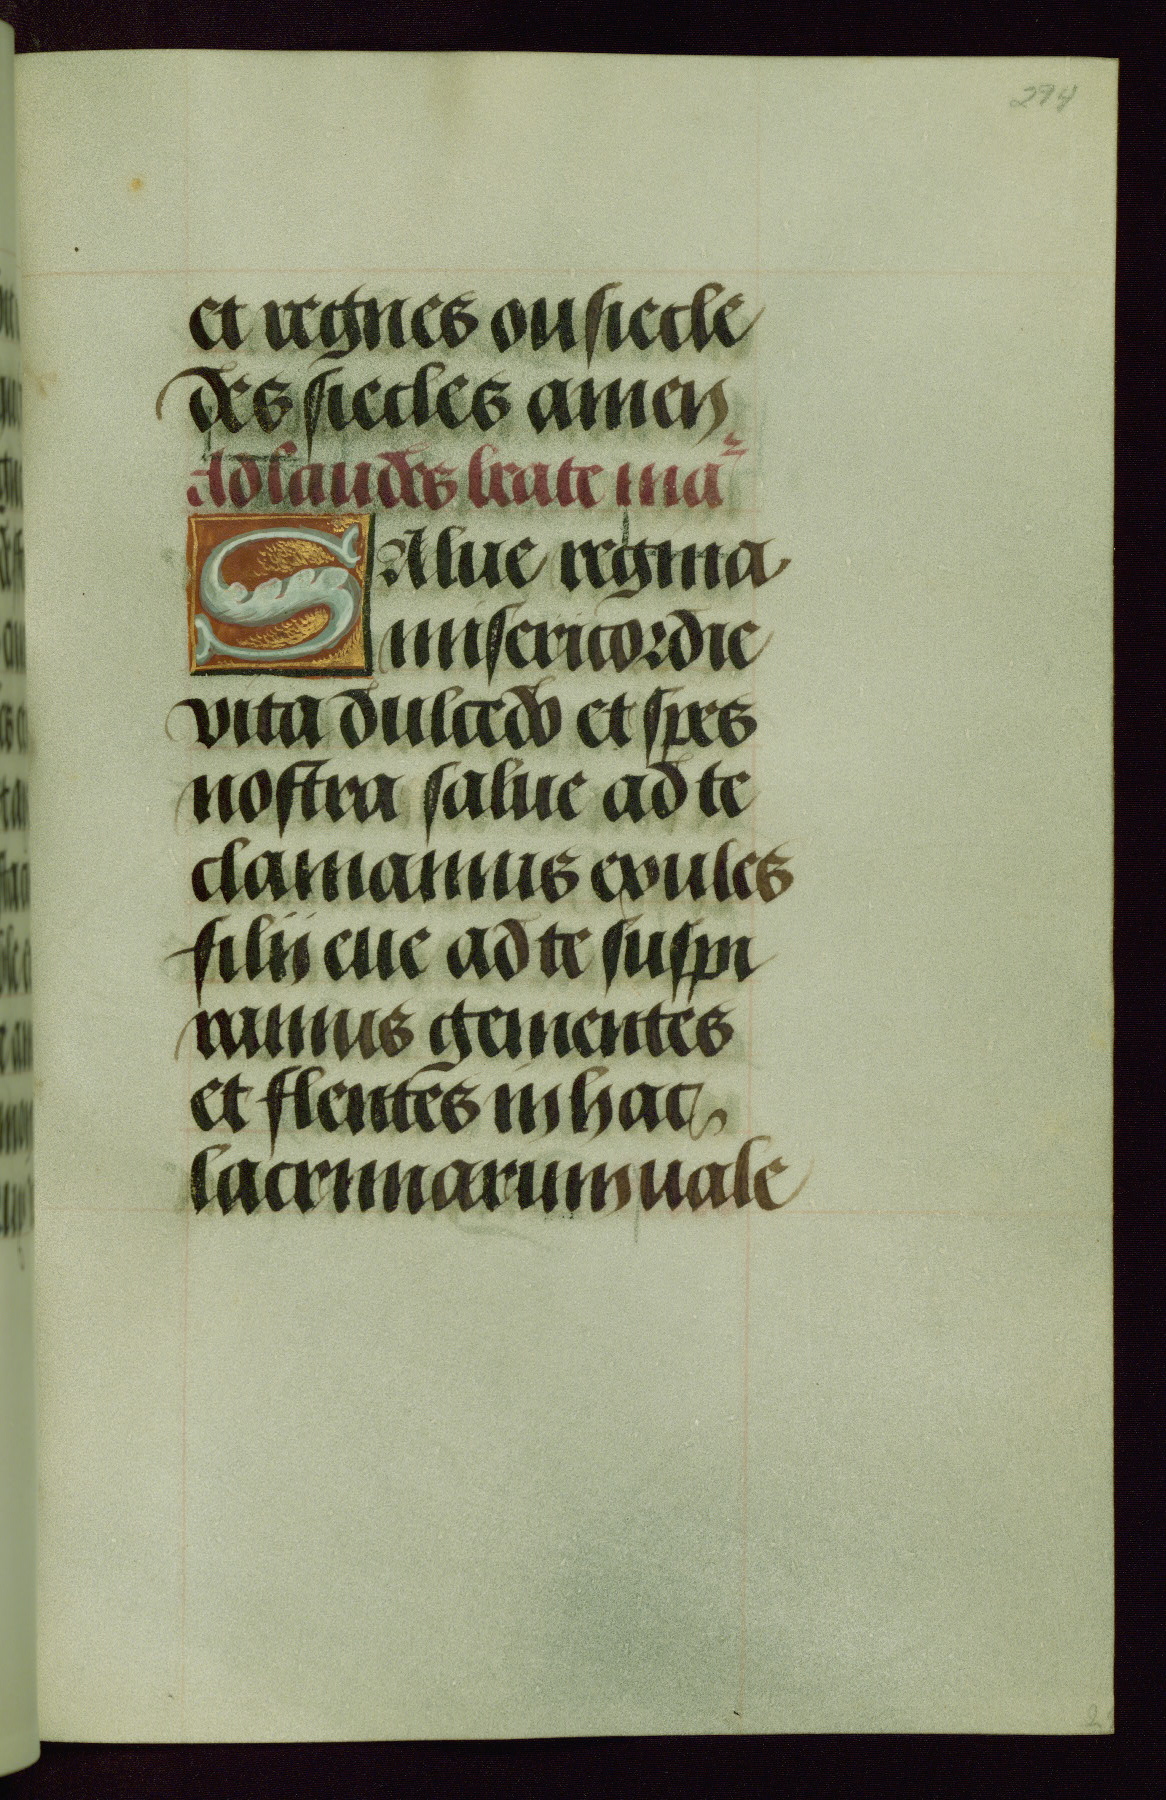 294
et regnes ou siecle
des siecles amen
Ad laudes beate ma
SAlue regina
misericordie
vita dulcedo et spes
nostra salue ad te
clamamus exules
filij eue ad te suspi
ramus gementes
et flentes in hac
lacrimarum uale